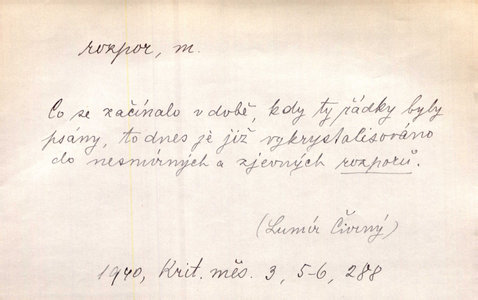 rozpor, m.
Co se začínalo v době, kdy ty řádky byly
psány, to dnes je již vykrystalisováno
do nesmírných a zjevných rozporů.
(Lumír Čivrný)
1940, Krit. měs. 3, 5-6, 288